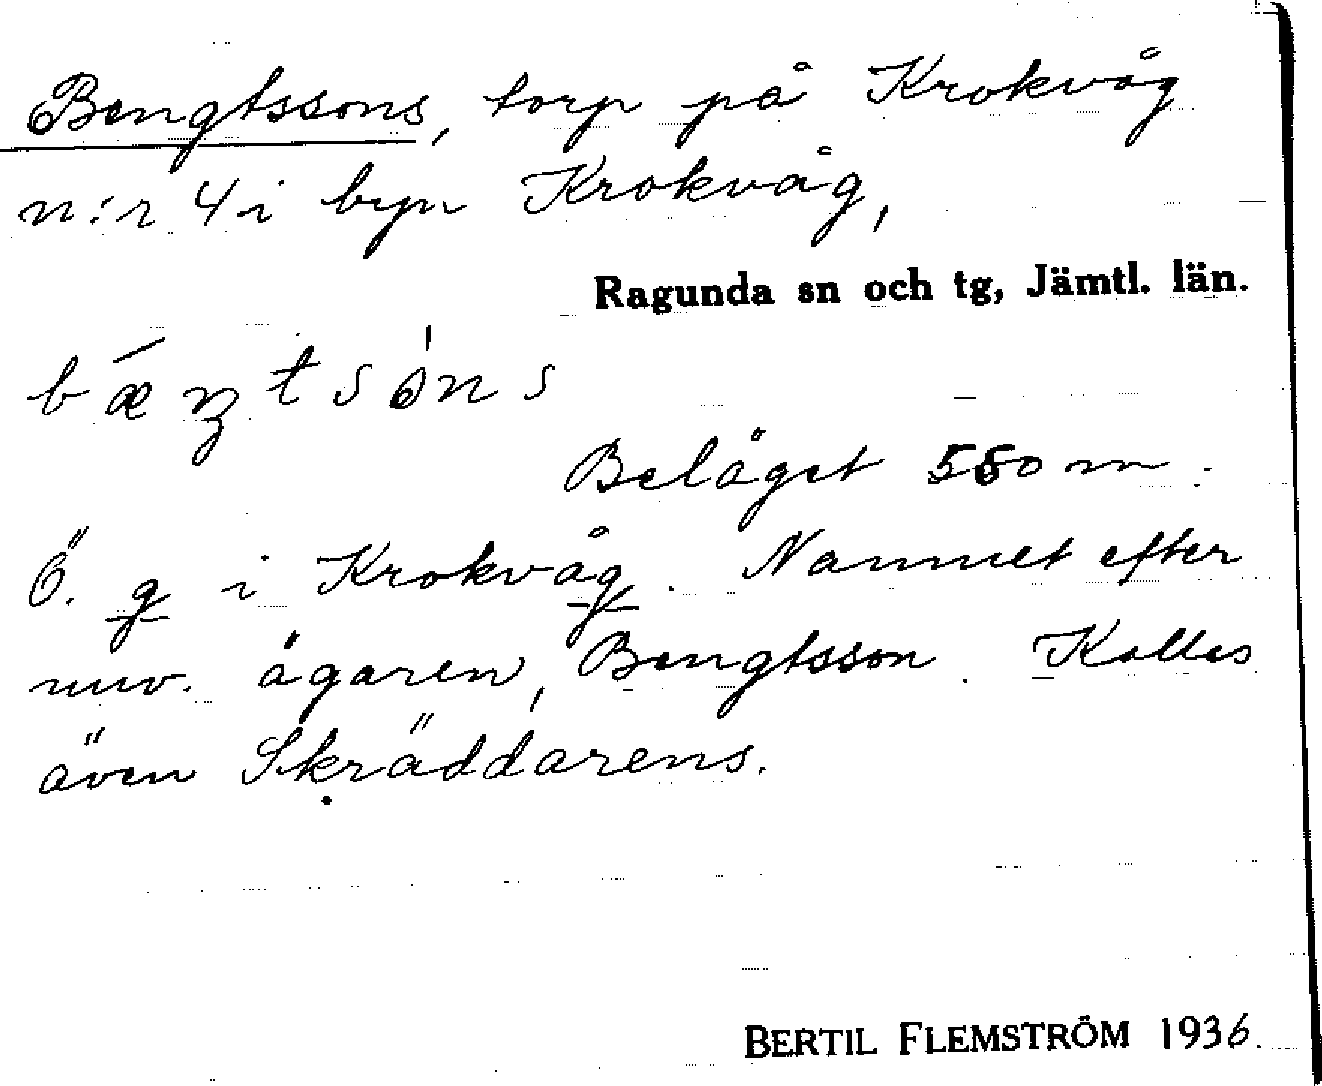 Bengtssons, torp på Krokvåg
n:r 4 i byn Krokvåg,
Ragunda sn och tg, Jämtl. län.
bæŋtsȯns
Beläget 550 m.
Ö. g i Krokvåg. Namnet efter
nuv. ägaren, Bengtsson. Kallas
även Skräddarens.
BERTIL FLEMSTRÖM 1936.